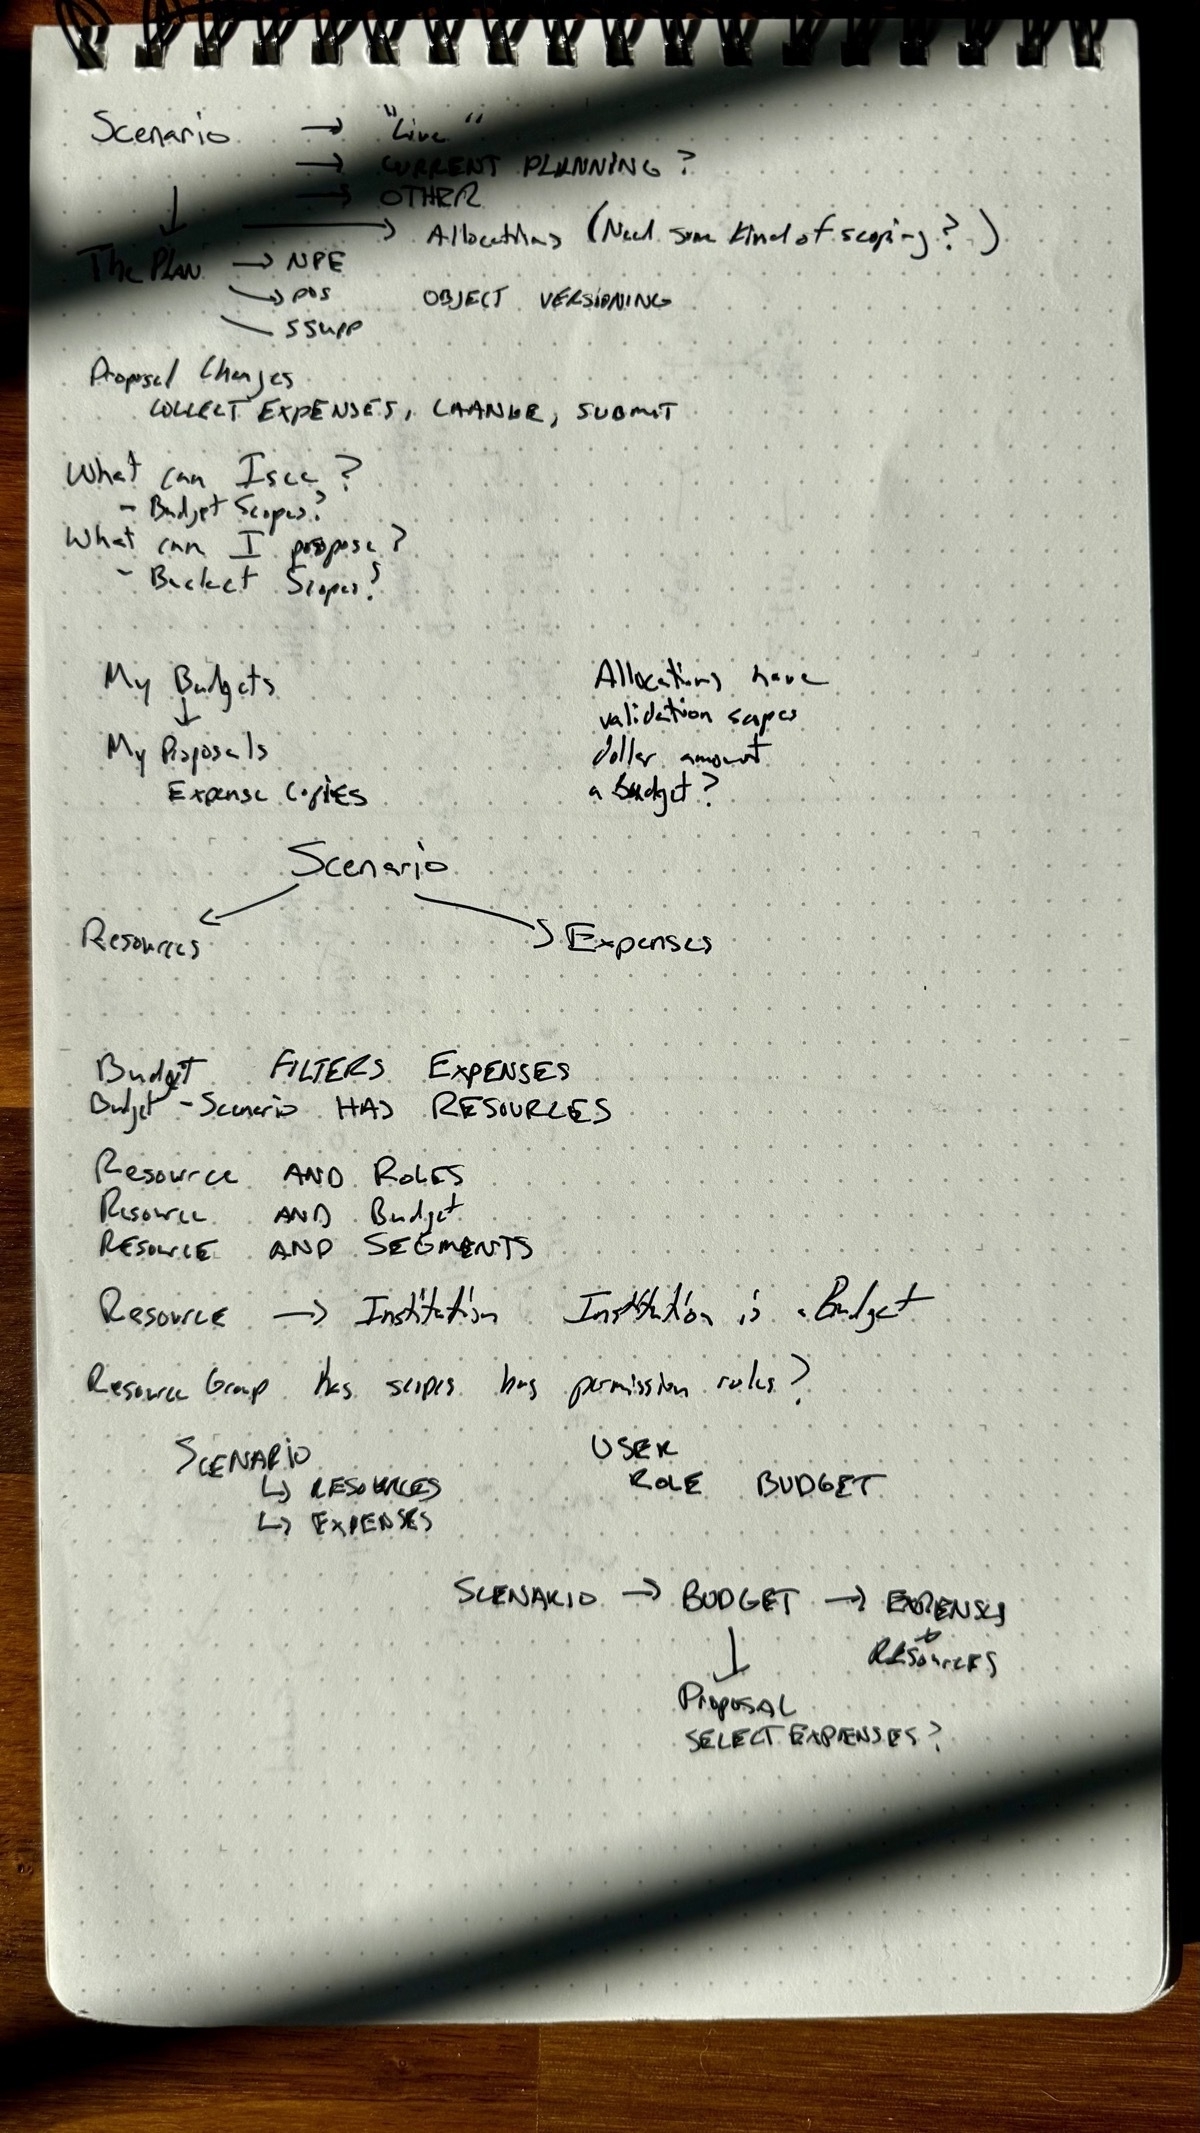 Scenario → "Live"
→ CURRENT PLANNING?
→ OTHER
↓ → Allocations (Need some kind of scoping?)
The PLAN → NPE
→ POS OBJECT VERSIONING
SSUPP
Proposal Changes
COLLECT EXPENSES, CHANGE, SUBMIT
What can I see?
- Budget Scopes?
What can I propose?
- Budget Scopes?
My Budgets
↓
My Proposals
Expense Copies
Allocations have
validation scopes
dollar amount
a budget?
Scenario
Resources
Expenses
Budget FILTERS EXPENSES
Budget - Scenario HAS RESOURCES
Resource AND ROLES
Resource AND Budget
RESOURCE AND SEGMENTS
RESOURCE → Institution Institution is a Budget
Resource Group has scopes has permission rules?
SCENARIO
↳ RESOURCES
↳ EXPENSES
USER
ROLE BUDGET
SCENARIO → BUDGET → EXPENSES
RESOURCES
↓
PROPOSAL
SELECT EXPENSES?